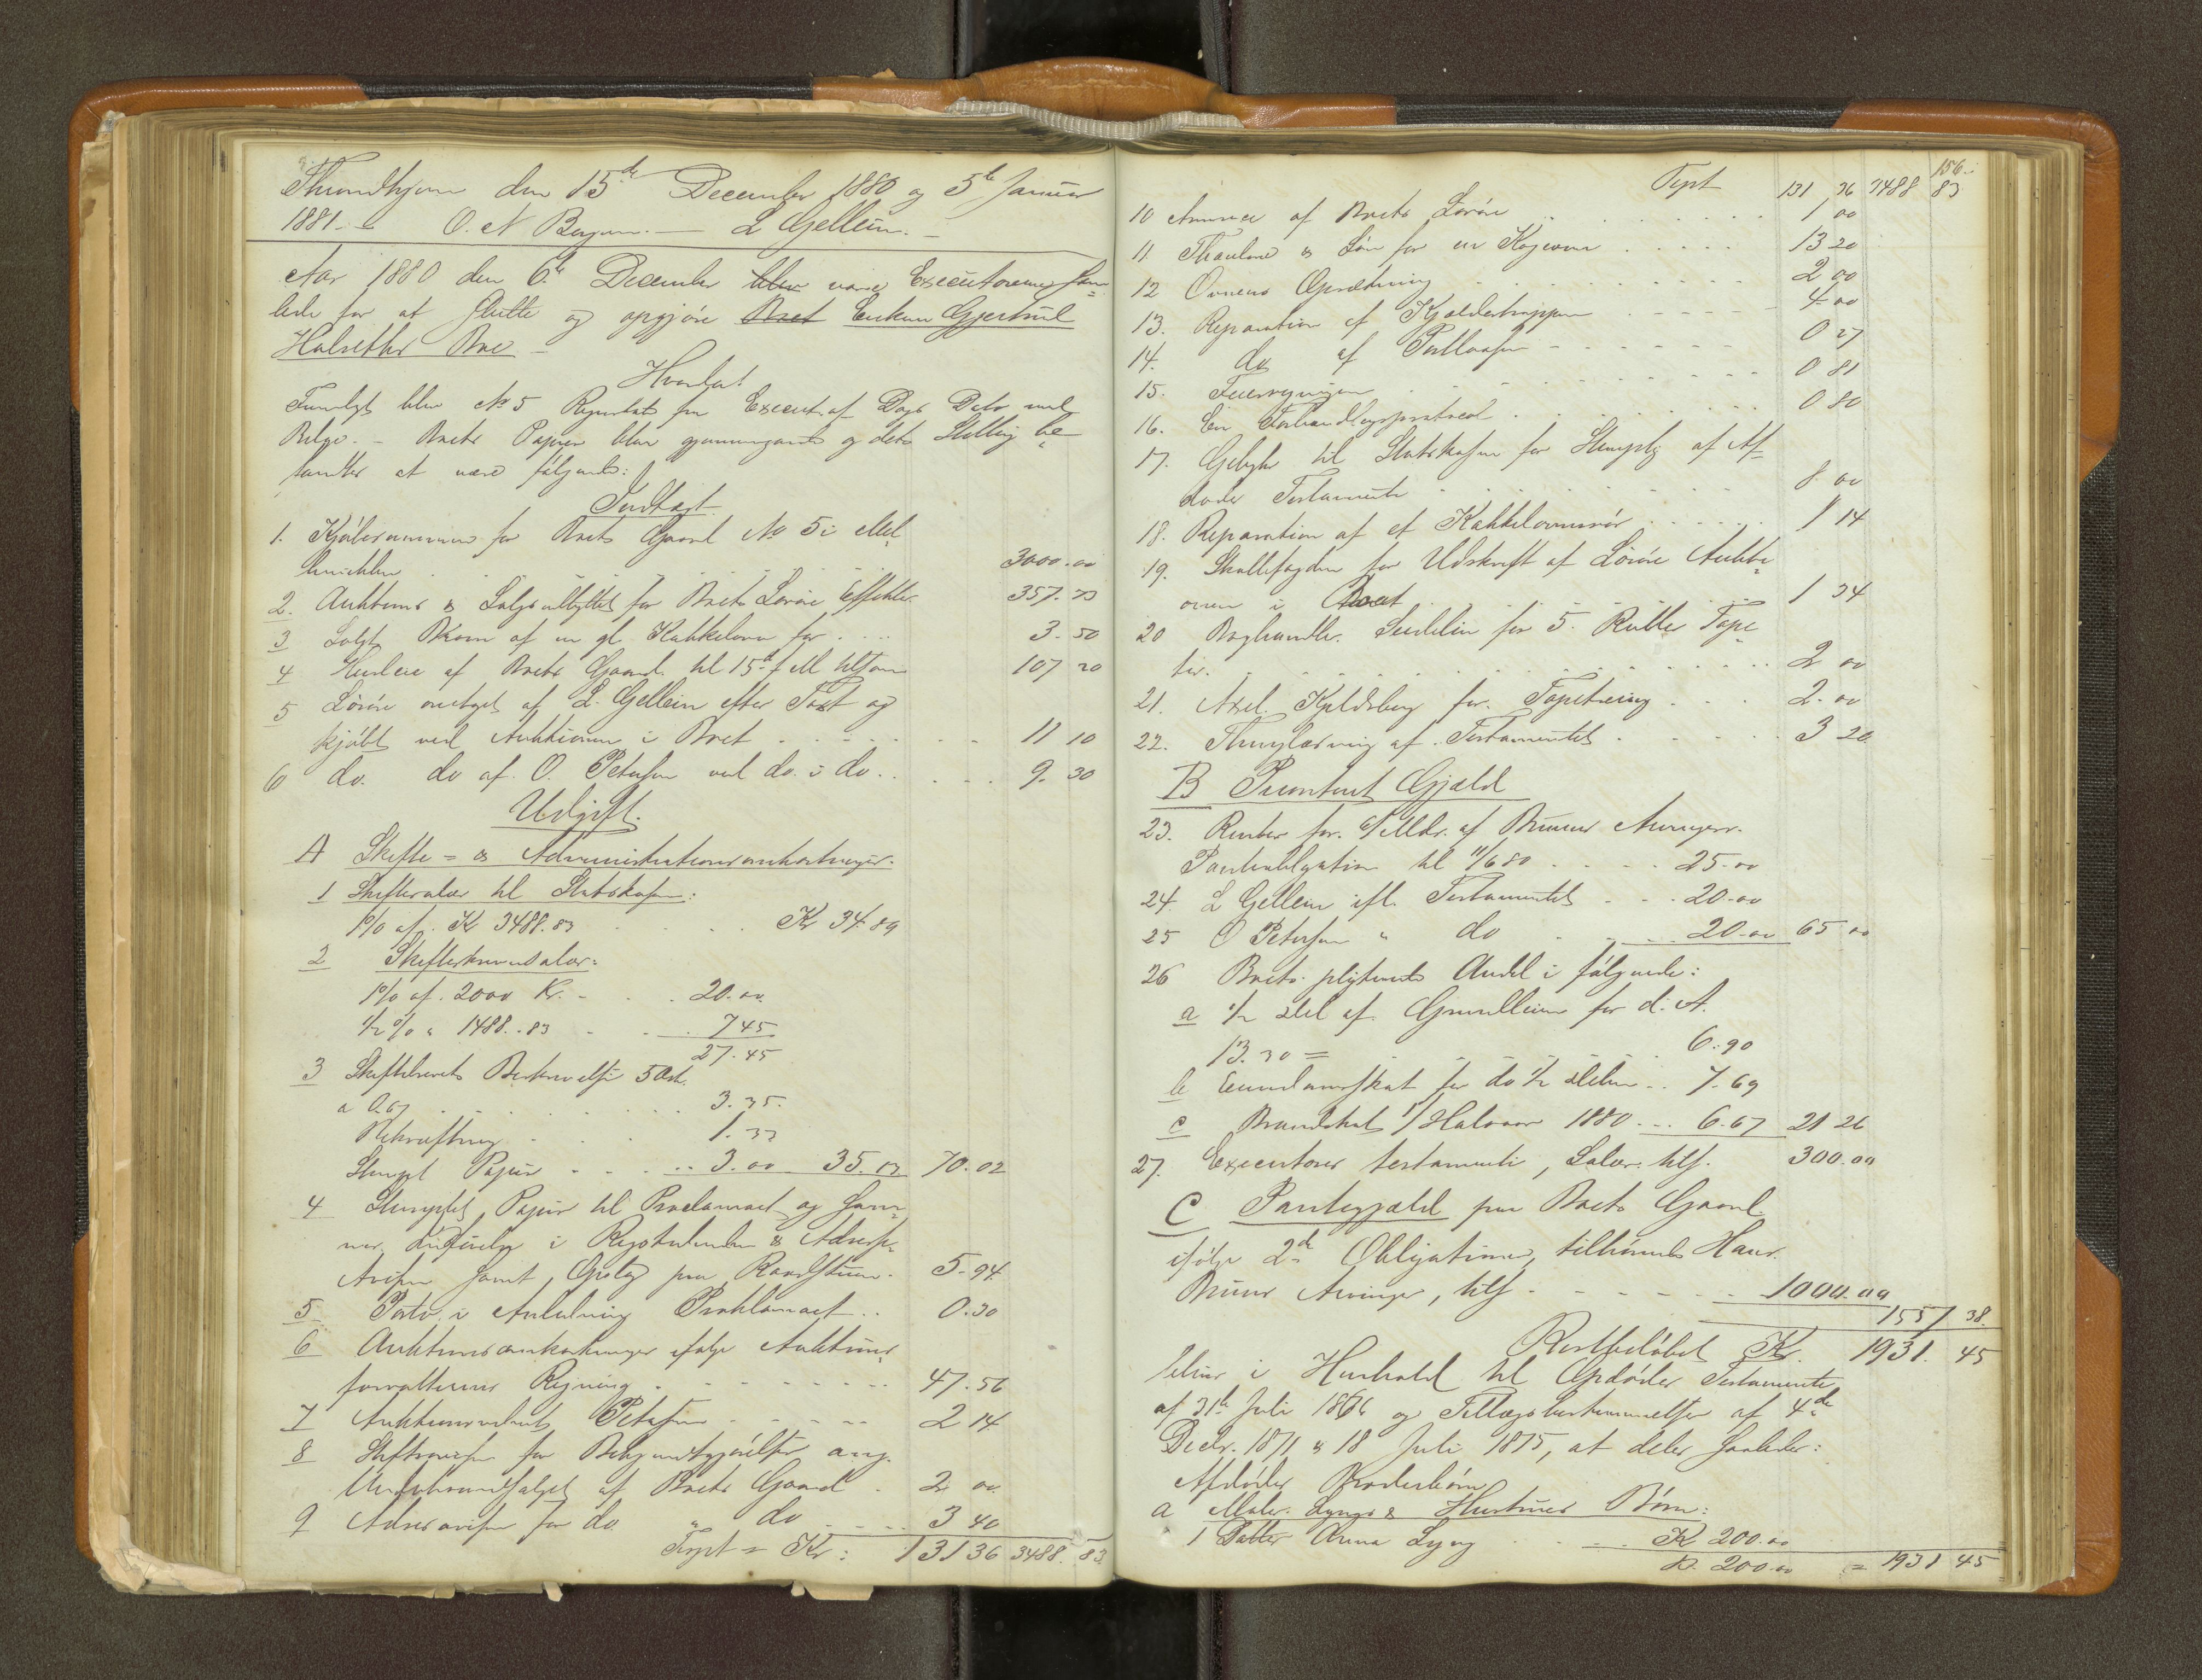 Throndhjem den 15de December 1880 og 5te Januar
1881. O. N. Bergum. — L Gellein. —
Aar 1880 den 6te December blev vare Executorerne sam
lede for at slutte og opgjøre Boet Enken Gjertrud
Halseths Boe —
Hvorda!
Fremlagt blev No 5 Regnskab fra Execut. af Dags Dato med
Bilge. – Boets Papirer blev gjennemgaaet og dets Stilling be
fandtes at være følgende:
Indtægt.
1. Kjøbesummen for Boets Gaard No 5 i Mel
lemi
3000.00
2. Auktions & Salgsudbyttet for Boets Løsøre Effekter 357.73
3 Solgt af en gl. Kakkelovn for . . . 3.50
4 Husleie af Boets Gaard til 15de f. M. tilsam 107 20
5 Løsøre modtaget af L. Gellein efter Taxt og
kjøbt ved Auktionen i Boet . . . . . 11 10
6 do. do af O. Petersen ved do. i do. . . . 9. 30
Udgift.
A Skifte = & Administrationsomkostninger.
1 Skiftesalær til Statskassen:
1% af Kr 3488.83 . . . . Kr 34.89
2 Skifteskriversalær:
1% af 2000 Kr. - . . 20.00
½ % " 1488..83 - . . 7 45
27.45
3 Skiftebrevets Beskrivelse 5 Ark.
a 0.67 . . . . . . 3.35.
Bekræftning . . . . 1.33
Stemplt Papir - - . . . 3.00 35.13 70.02
4 Stemplet Papir til Proclamaet og sam
mes Indførelse i Rigstidenden & Adresse
Avisen samt Opslag paa Raadstuen. 5.94
5 Porto i Anledning Proklamaet . . 0.30
6 Auktionsomkostninger ifølge Auktions
forvalterens Regning . - - - - - 47.56
7 Auktionsvidnet Petersen - - - - - 2 14
8 Stiftsavisen for Bekjendtgjørelse ang.
Underhaandssalget af Boets Gaard . 2 00
9 Adresavisen for do. " do - - - 3 40
Trpt = Kr: 131 36 3488. 83
156.
Trpt 131 36 3488 83
10 Annonce af Boets Løsøre . . . . . . 1 00
11 & Løn for en . . . . 13 20
12 Ovnens Opsætning . . . . . 2 00
13. Reparation af Kjældertrappen - - - - 4 00
14. do af - - - - - 0 27
15. - - - - 0 81
16. En Forhandlingsprotocol . . . . 0 80
17. Gebyhr til Statskassen for Stempling af Af
dødes Testamente . . . . . 8. 00
18. Reparation af et Kakkelovnsrør . . . . 1 14
19. for Udskrift af Løsøre Aukti
onen i Boet . . . . . 1 34
20 Boghandler for 5 Ruller Tape
ter. . . . . . . . 2 00
21. Axel Kjeldsberg for Tapetsering . . . 2.00
22. Thinglæsning af Testamentet . . . . 3 20
B Gjæld
23. Renter for 6 Mdr. af Bruuns Arvingers
Panteobligation til 11/6 80 . . . . 25.00
24. L Gellein ifl. Testamentet - - . 20.00
25 O Petersen " do . . . . 20.00 65 00
26 Boets pligtende Andel i følgende:
a ½ Del af Grundleien for d. A.
13.30 = - - - . 6.90
b for do ½ Delen . . 7.69
c Brandskat 1/ Halvaar 1880. - . . 6.67 21 26
27. Executores testamenti, Salær tils. 300.00
C Pantegjæld paa Boets Gaard
ifølge 2de Obligationer, tilhørende Hans
Bruuns Arvinger, tils. - - - - - - 1000.00
1557 38.
Restbeløbet Kr. 1931. 45
bliver i Henhold til Afdødes Testamente
af 31te Juli 1866 og Tillægsbestemmelser af 4de
Decbr. 1871 & 18 Juli 1875, at dele saaledes:
Afdødes Broderbørn
a Maler Lyngs & Hustrues Børn:
1 Datter Anna Lyng . . . . Kr 200.00
Kr. 200.00 = 1931 45